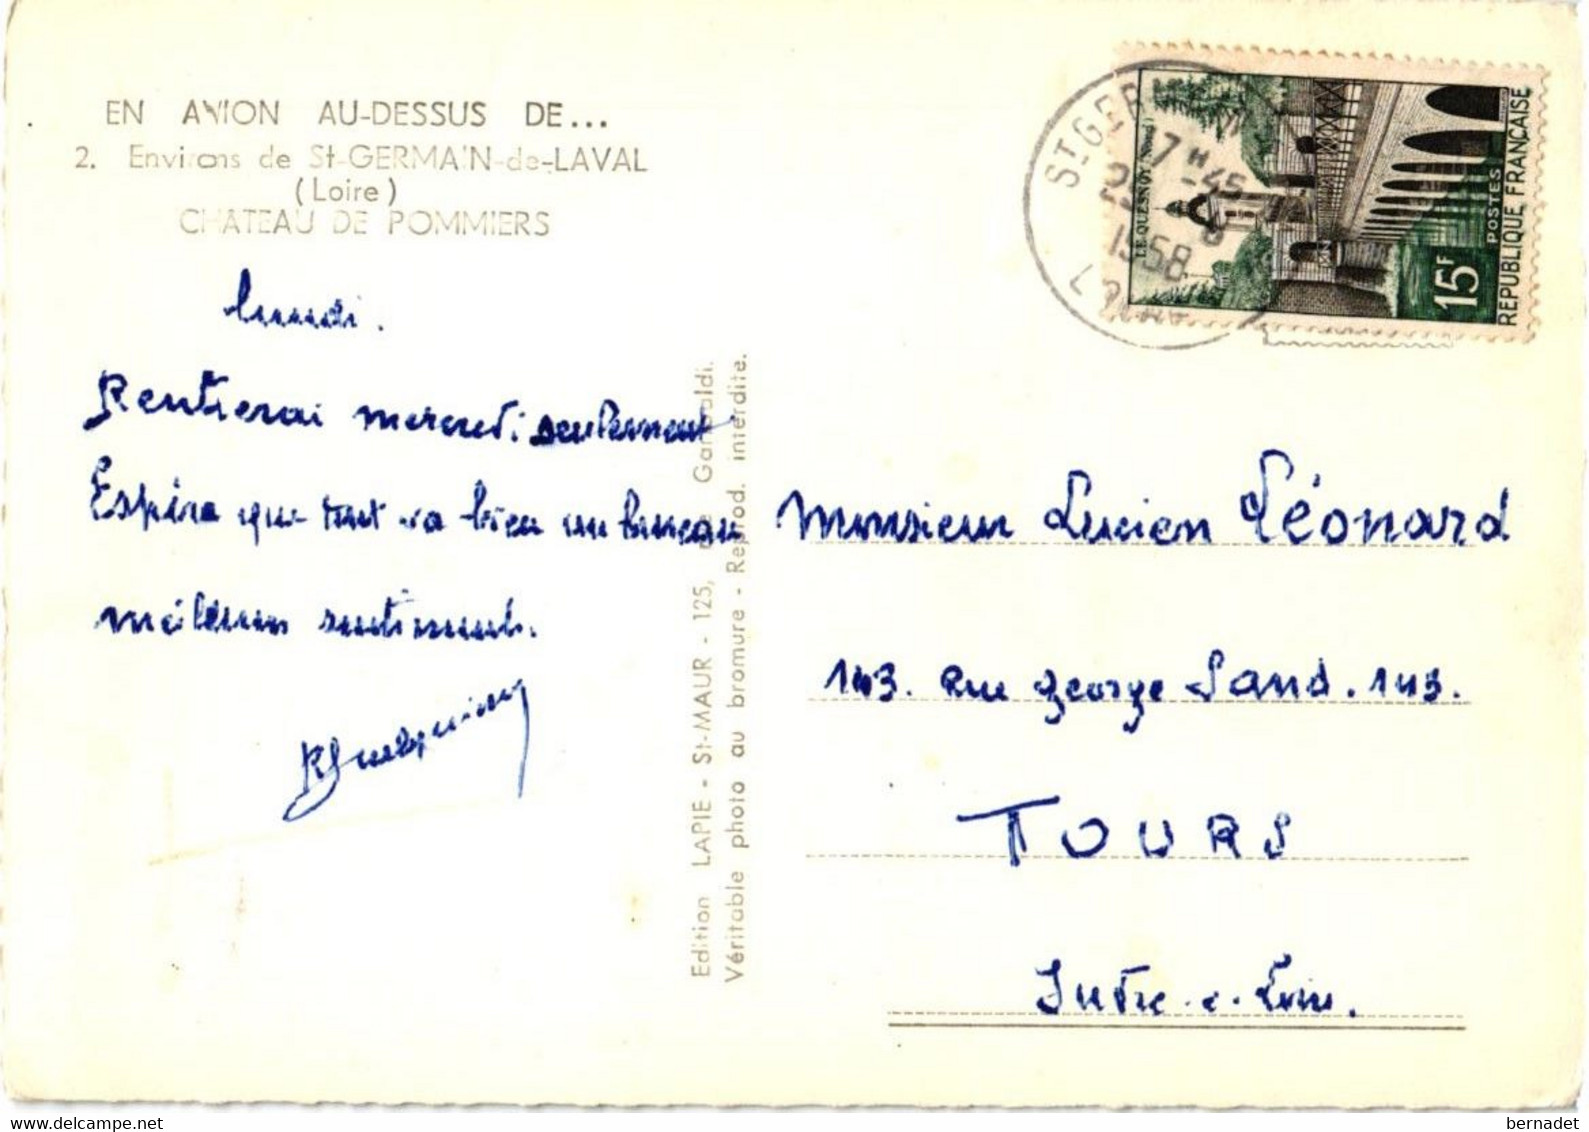 EN AVION AU-DESSUS DE...
2. Environs de St-GERMAIN-de-LAVAL
(Loire)
CHATEAU DE POMMIERS
lundi.
Rentrerai mercredi seulement
Espère que tout va bien au bureau
meilleurs sentiments.
Edition LAPIE - St-MAUR - 125, Garibaldi.
Véritable photo au bromure - Reprod. interdite.
ST GER
17 H 45
8
1958
LE QUESNOY (Nord)
15F
POSTES
REPUBLIQUE FRANÇAISE
Monsieur Lucien Léonard
143. Rue George Sand. 143.
TOURS
Indre-e-Loire.
www.delcampe.net
bernadet